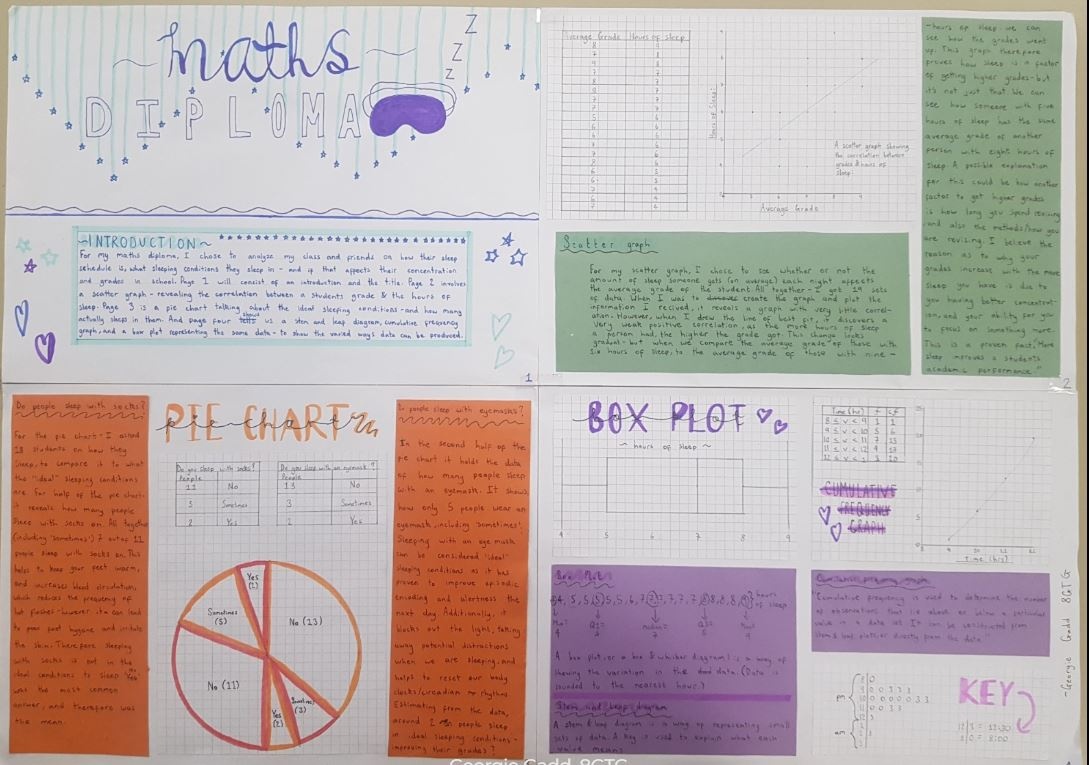 Maths
DIPLOMA
Z
Z
Z
~INTRODUCTION~
For my maths diploma, I chose to analyze my class and friends on how their sleep
schedule is, what sleeping conditions they sleep in - and if that affects their concentration
and grades in school. Page 1 will consist of an introduction and the title. Page 2 involves
a scatter graph - revealing the correlation between a students grade & the hours of
sleep. Page 3 is a pie chart talking about the ideal sleeping conditions - and how many
actually sleep in them. And page four us a stem and leap diagram, cumulative frequency
graph, and a box plot representing the same data - to show the varied ways data can be produced.
1
Average Grade Hours of Sleep
Hours of Sleep:
Average Grade
A scatter graph showing
the correlation between
grades & hours of
sleep.
Scatter graph
For my scatter graph, I chose to see whether or not the
amount of sleep someone gets (on average) each night affects
the average grade of the student. All together - I got 19 sets
of data. When I was to create the graph and plot the
information I recived, it reveals a graph with very little correl-
ation. However, when I drew the line of best fit, it discovers a
very weak positive correlation, as the more hours of sleep
a person had, the higher the grade got. This change looks
gradual - but when we compare the average grade of those with
six hours of sleep, to the average grade of those with nine -
-hours of sleep: we can
see how the grades went
up. This graph therefore
proves how sleep is a factor
of getting higher grades - but
it's not just that. We can
see how someone with five
hours of sleep has the same
average grade of another
person with eight hours of
sleep. A possible explanation
for this could be how another
factor to get higher grades
is how long you spend revising
and also the methods/how you
are revising. I believe the
reason as to why your
grades increase with the more
sleep you have is due to
you having better concentrat-
ion, and your ability for you
to focus on something more.
This is a proven fact, "More
sleep improves a students
academic performance."
2
Do people sleep with socks?
For the pie chart - I asked
18 students on how they
sleep, to compare it to what
the "ideal" sleeping conditions
are. For half of the pie chart,
it reveals how many people
sleep with socks on. All together
(including 'sometimes') 7 out of 11
people sleep with socks on. This
helps to keep your feet warm,
and increases blood circulation,
which reduces the frequency of
hot flushes - however it can lead
to poor foot hygene and irritate
the skin. Therefore sleeping
with socks is not in the
ideal conditions to sleep.
was the most common
answer, and therefore was
the mean.
PIE CHART
Do you sleep with socks? Do you sleep with an eyemask?
People People
11 No 13 No
5 Sometimes 3 Sometimes
2 Yes 2 Yes
Yes
(2)
Sometimes
(5)
No (13)
No (11)
Yes
(2)
Sometimes
(3)
Do people sleep with eyemasks?
In the second half of the
pie chart it holds the data
of how many people sleep
with an eyemask. It shows
how only 5 people wear an
eyemask, including 'sometimes'.
Sleeping with an eye mask
can be considered "ideal"
sleeping conditions as it has
proven to improve episodic
encoding and alertness the
next day. Additionally, it
blocks out the light, taking
away potential distractions
when we are sleeping, and
helps to reset our body
clocks/circadian rhythms.
Estimating from the data,
around 2 people sleep
in ideal sleeping conditions -
improving their grades?
BOX PLOT
~ hours of sleep ~
4 5 6 7 8 9
Time (hrs) f cf
CUMULATIVE
FREQUENCY
GRAPH
Time (hrs)
Box Plot
hours
of sleep
A box plot, or a box & whisker diagram, is a way of
showing the variation in the data. (Data is
rounded to the nearest hour.)
Stem and leap diagram
A stem & leap diagram is a way of representing small
sets of data. A key is used to explain what each
value means.
Cumulative frequency graph
"Cumulative frequency is used to determine the number
of observations that lie above or below a particular
value in a data set. It can be constructed from
stem & leaf plots or directly from the data."
pm
am
KEY
- Georgie Gadd 8GTG
Georgie Gadd 8GTG